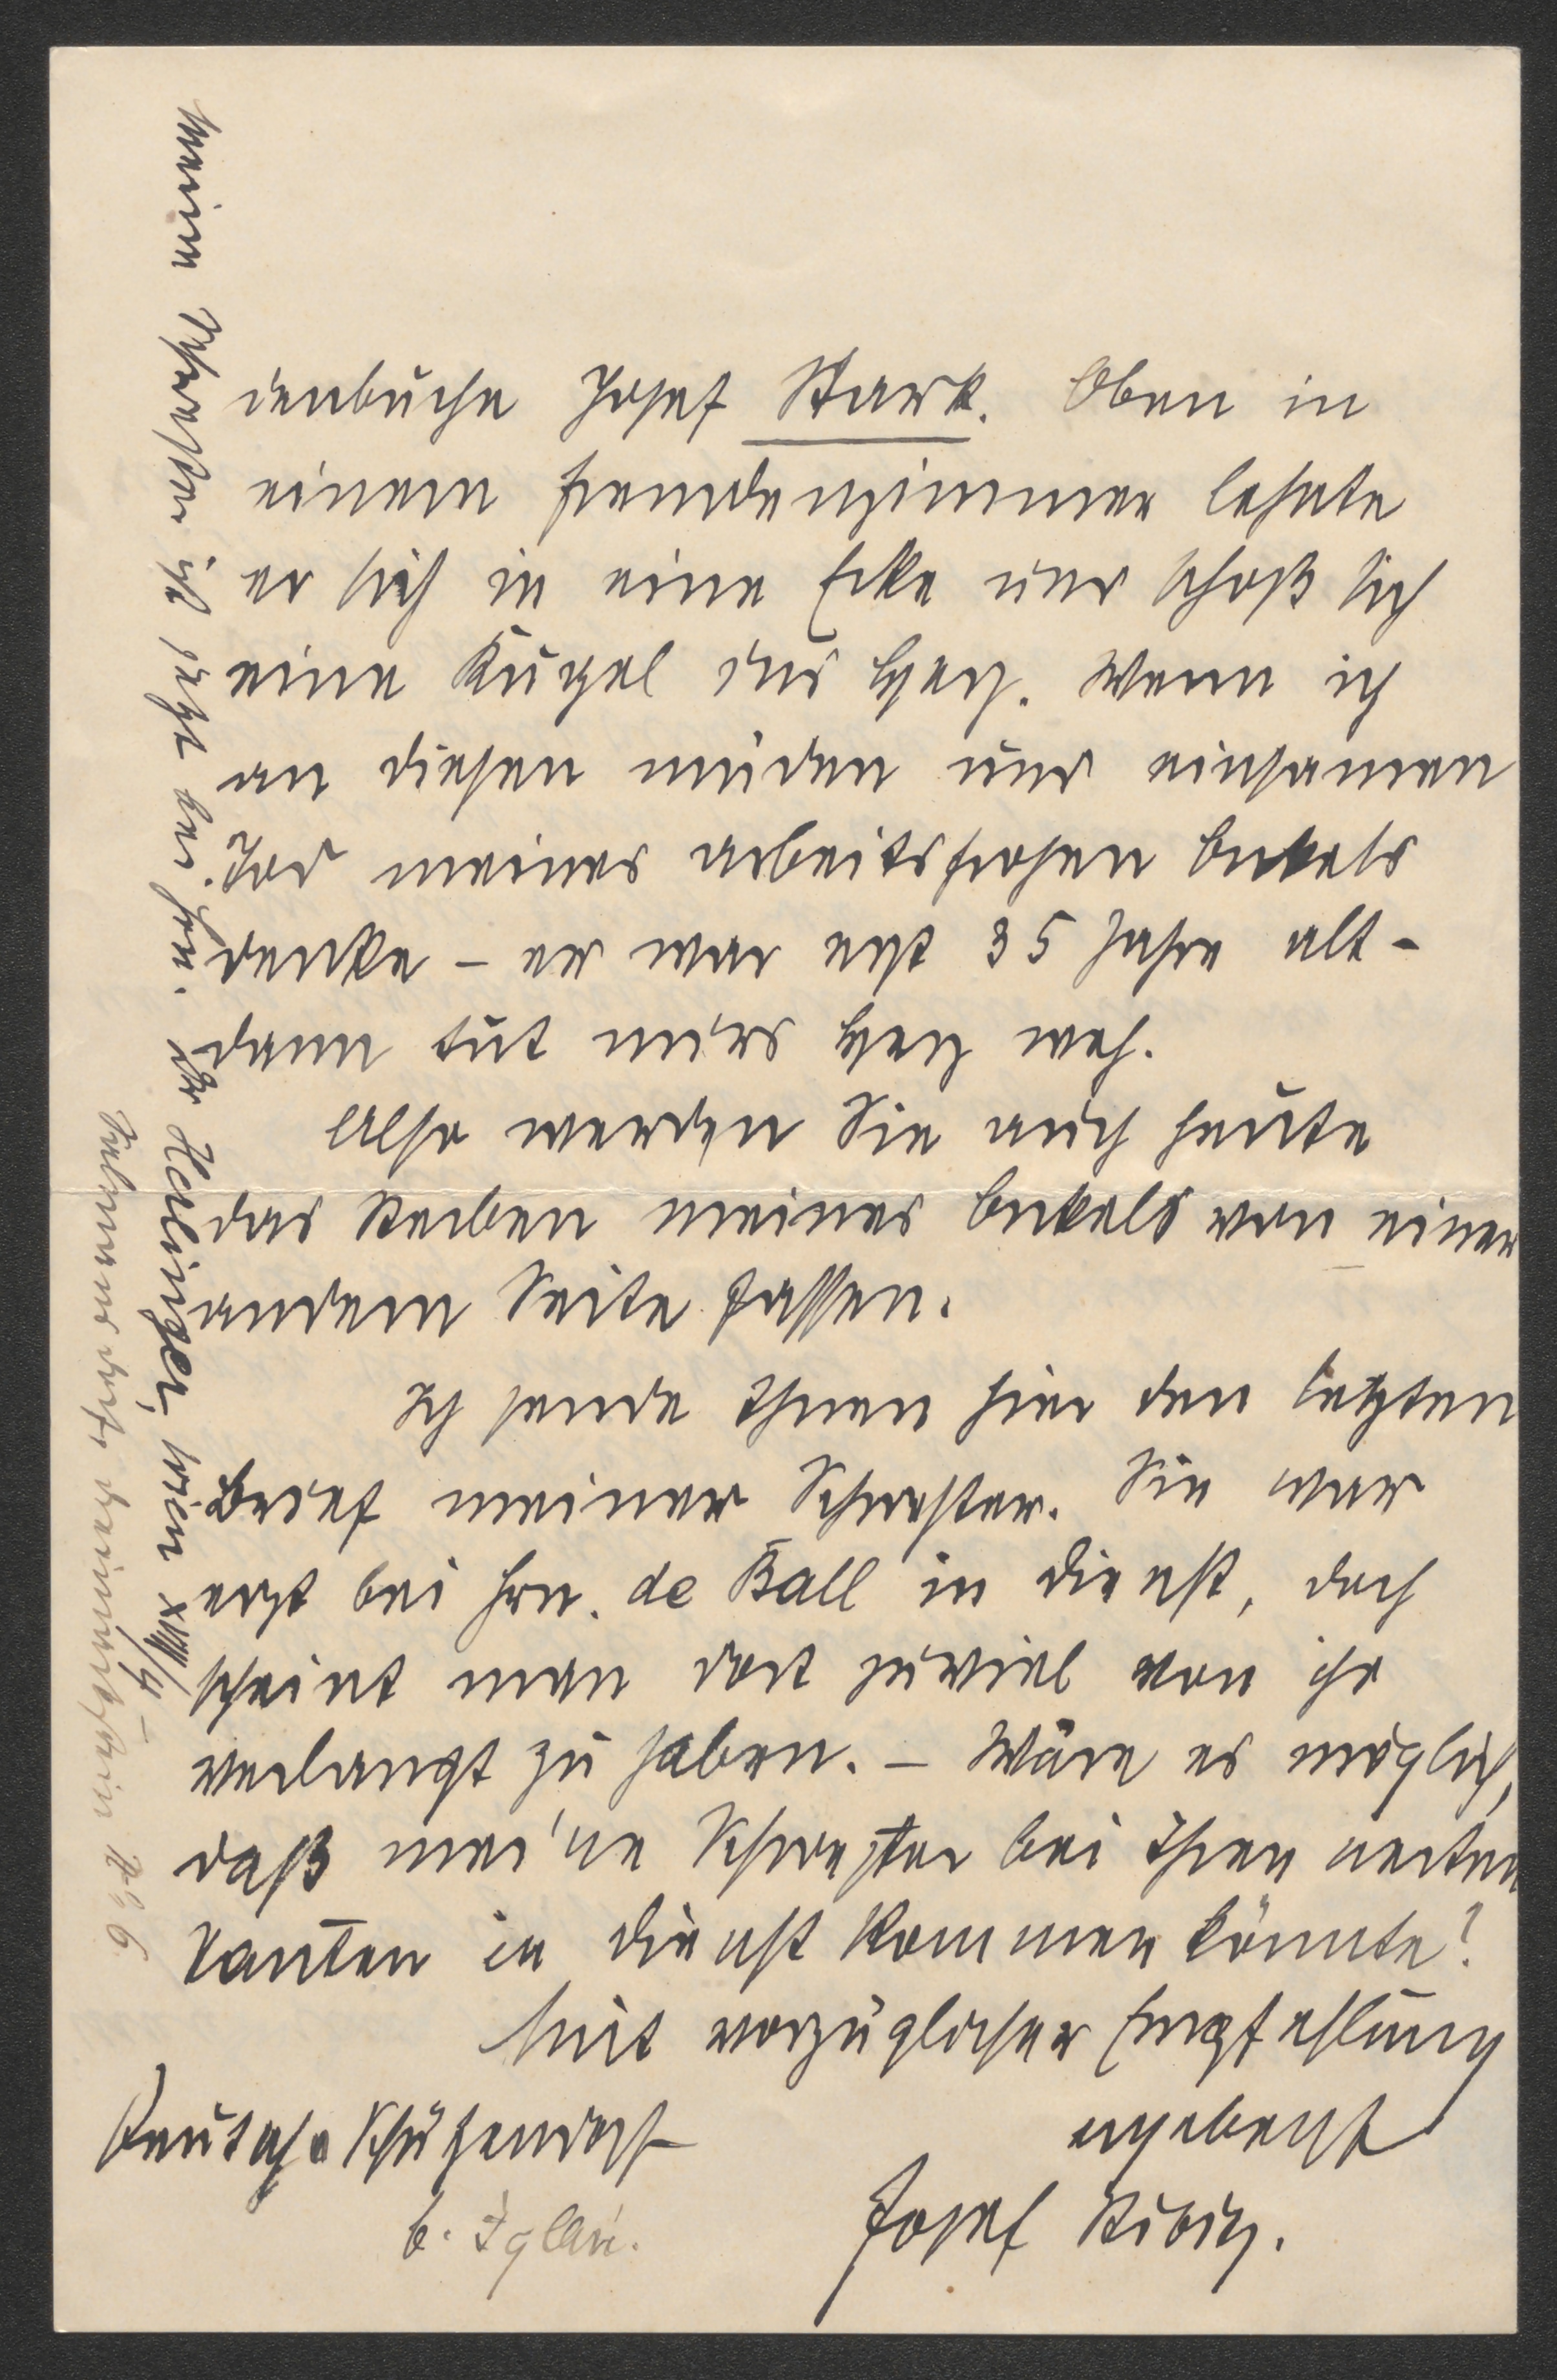 denbuche Josef Stark. Oben in
einem Fremdenzimmer lehnte
er sich in eine Ecke und schoß sich
eine Kugel ins Herz. Wenn ich
an diesen müden und einsamen
Tod meines arbeitsfrohen Onkels
denke – er war erst 35 Jahre alt –
dann tut mirs Herz weh.
Also werden Sie auch heute
das Sterben meines Onkels von einer
andern Seite fassen.
Ich sende Ihnen hier den letzten
Brief meiner Schwester. Sie war
erst bei Hrn. de Ball in Dienst, doch
scheint man dort zuviel von ihr
verlangt zu haben. – Wäre es möglich,
daß meine Schwester bei Ihren werten
Tanten in Dienst kommen könnte?
Mit vorzüglicher Empfehlung
ergebenst
Josef Stibitz.
Deutsch-Schützendorf
b. Iglau.
Meine Schwester ist jetzt bei Hrn. Dr Helinger, Wien XVIII/4 –